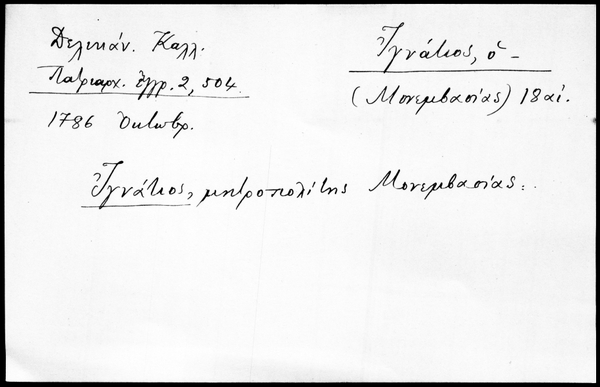 Δελικάν. Καλλ.
Πατριαρχ. Ἐγγρ. 2, 504.
1786 Ὀκτωβρ.
Ἰγνάτιος, ὁ -
(Μονεμβασίας) 18 αἰ.
Ἰγνάτιος, μητροπολίτης Μονεμβασίας:.